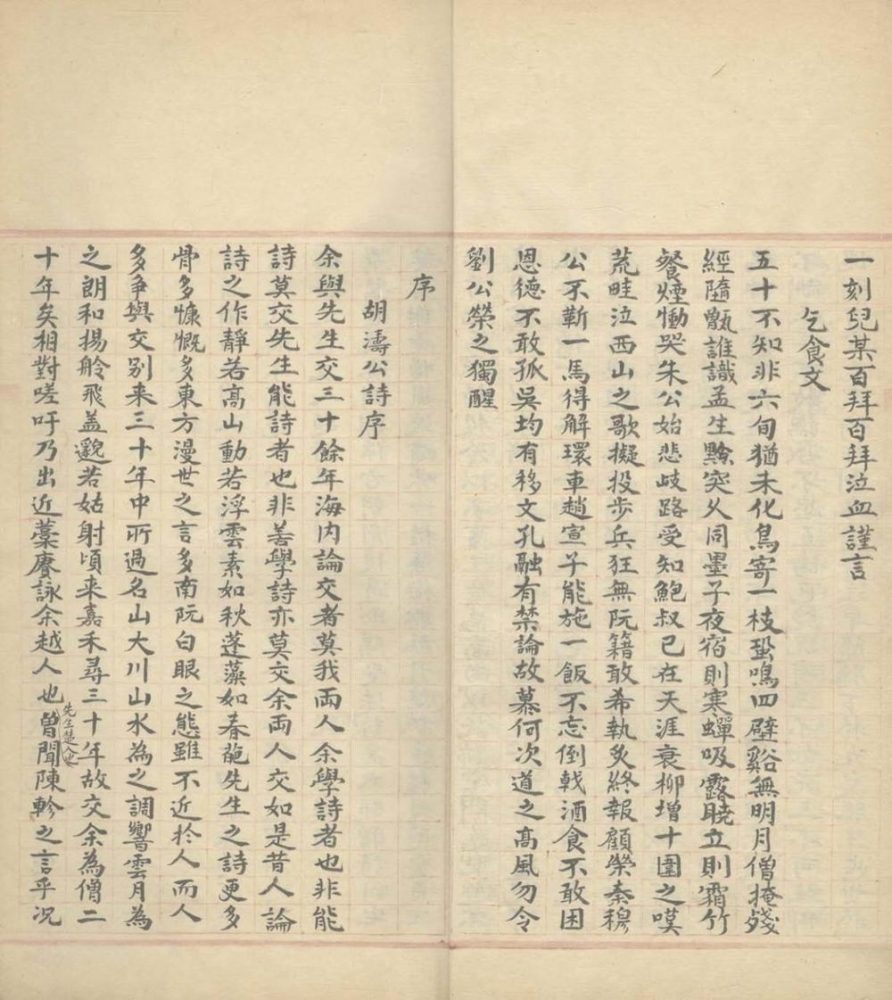 一刻兒某百拜百拜泣血謹言
乞食文
五十不知非六旬猶未化鳥寄一枝蛩鳴四壁谿無明月僧掩殘
經隨甑誰識孟生黔突久同墨子夜宿則寒蟬吸露曉立則霜竹
餐煙慟哭朱公始悲岐路受知鮑叔已在天涯衰柳增十圍之嘆
荒畦泣西山之歌擬投步兵狂無阮籍敢希執炙終報顧榮秦穆
公不靳一馬得解環車趙宣子能施一飯不忘倒戟酒食不敢困
恩德不敢孤吳均有移文孔融有禁論故慕何次道之高風勿令
劉公榮之獨醒
序
胡濤公詩序
余與先生交三十餘年海內論交者莫我兩人余學詩者也非能
詩莫交先生能詩者也非善學詩亦莫交余兩人交如是昔人論
詩之作靜若高山動若浮雲素如秋蓬藻如春葩先生之詩更多
骨多慷慨多東方漫世之言多南阮白眼之態雖不近於人而人
多爭與交別来三十年中所過名山大川山水為之調響雲月為
之朗和揚舲飛盖邈若姑射頃来嘉禾尋三十年故交余為僧二
十年矣相對嗟吁乃出近藁賡詠余越人也先生楚人也曾聞陳軫之言乎況